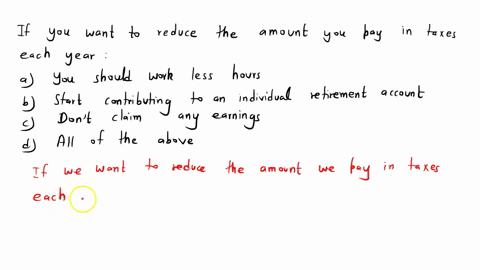 If you want to reduce the amount you pay in taxes
each year :
a) You should work less hours
b) Start contributing to an individual retirement account
c) Don't claim any earnings
d) All of the above
If we want to reduce the amount we pay in taxes
each